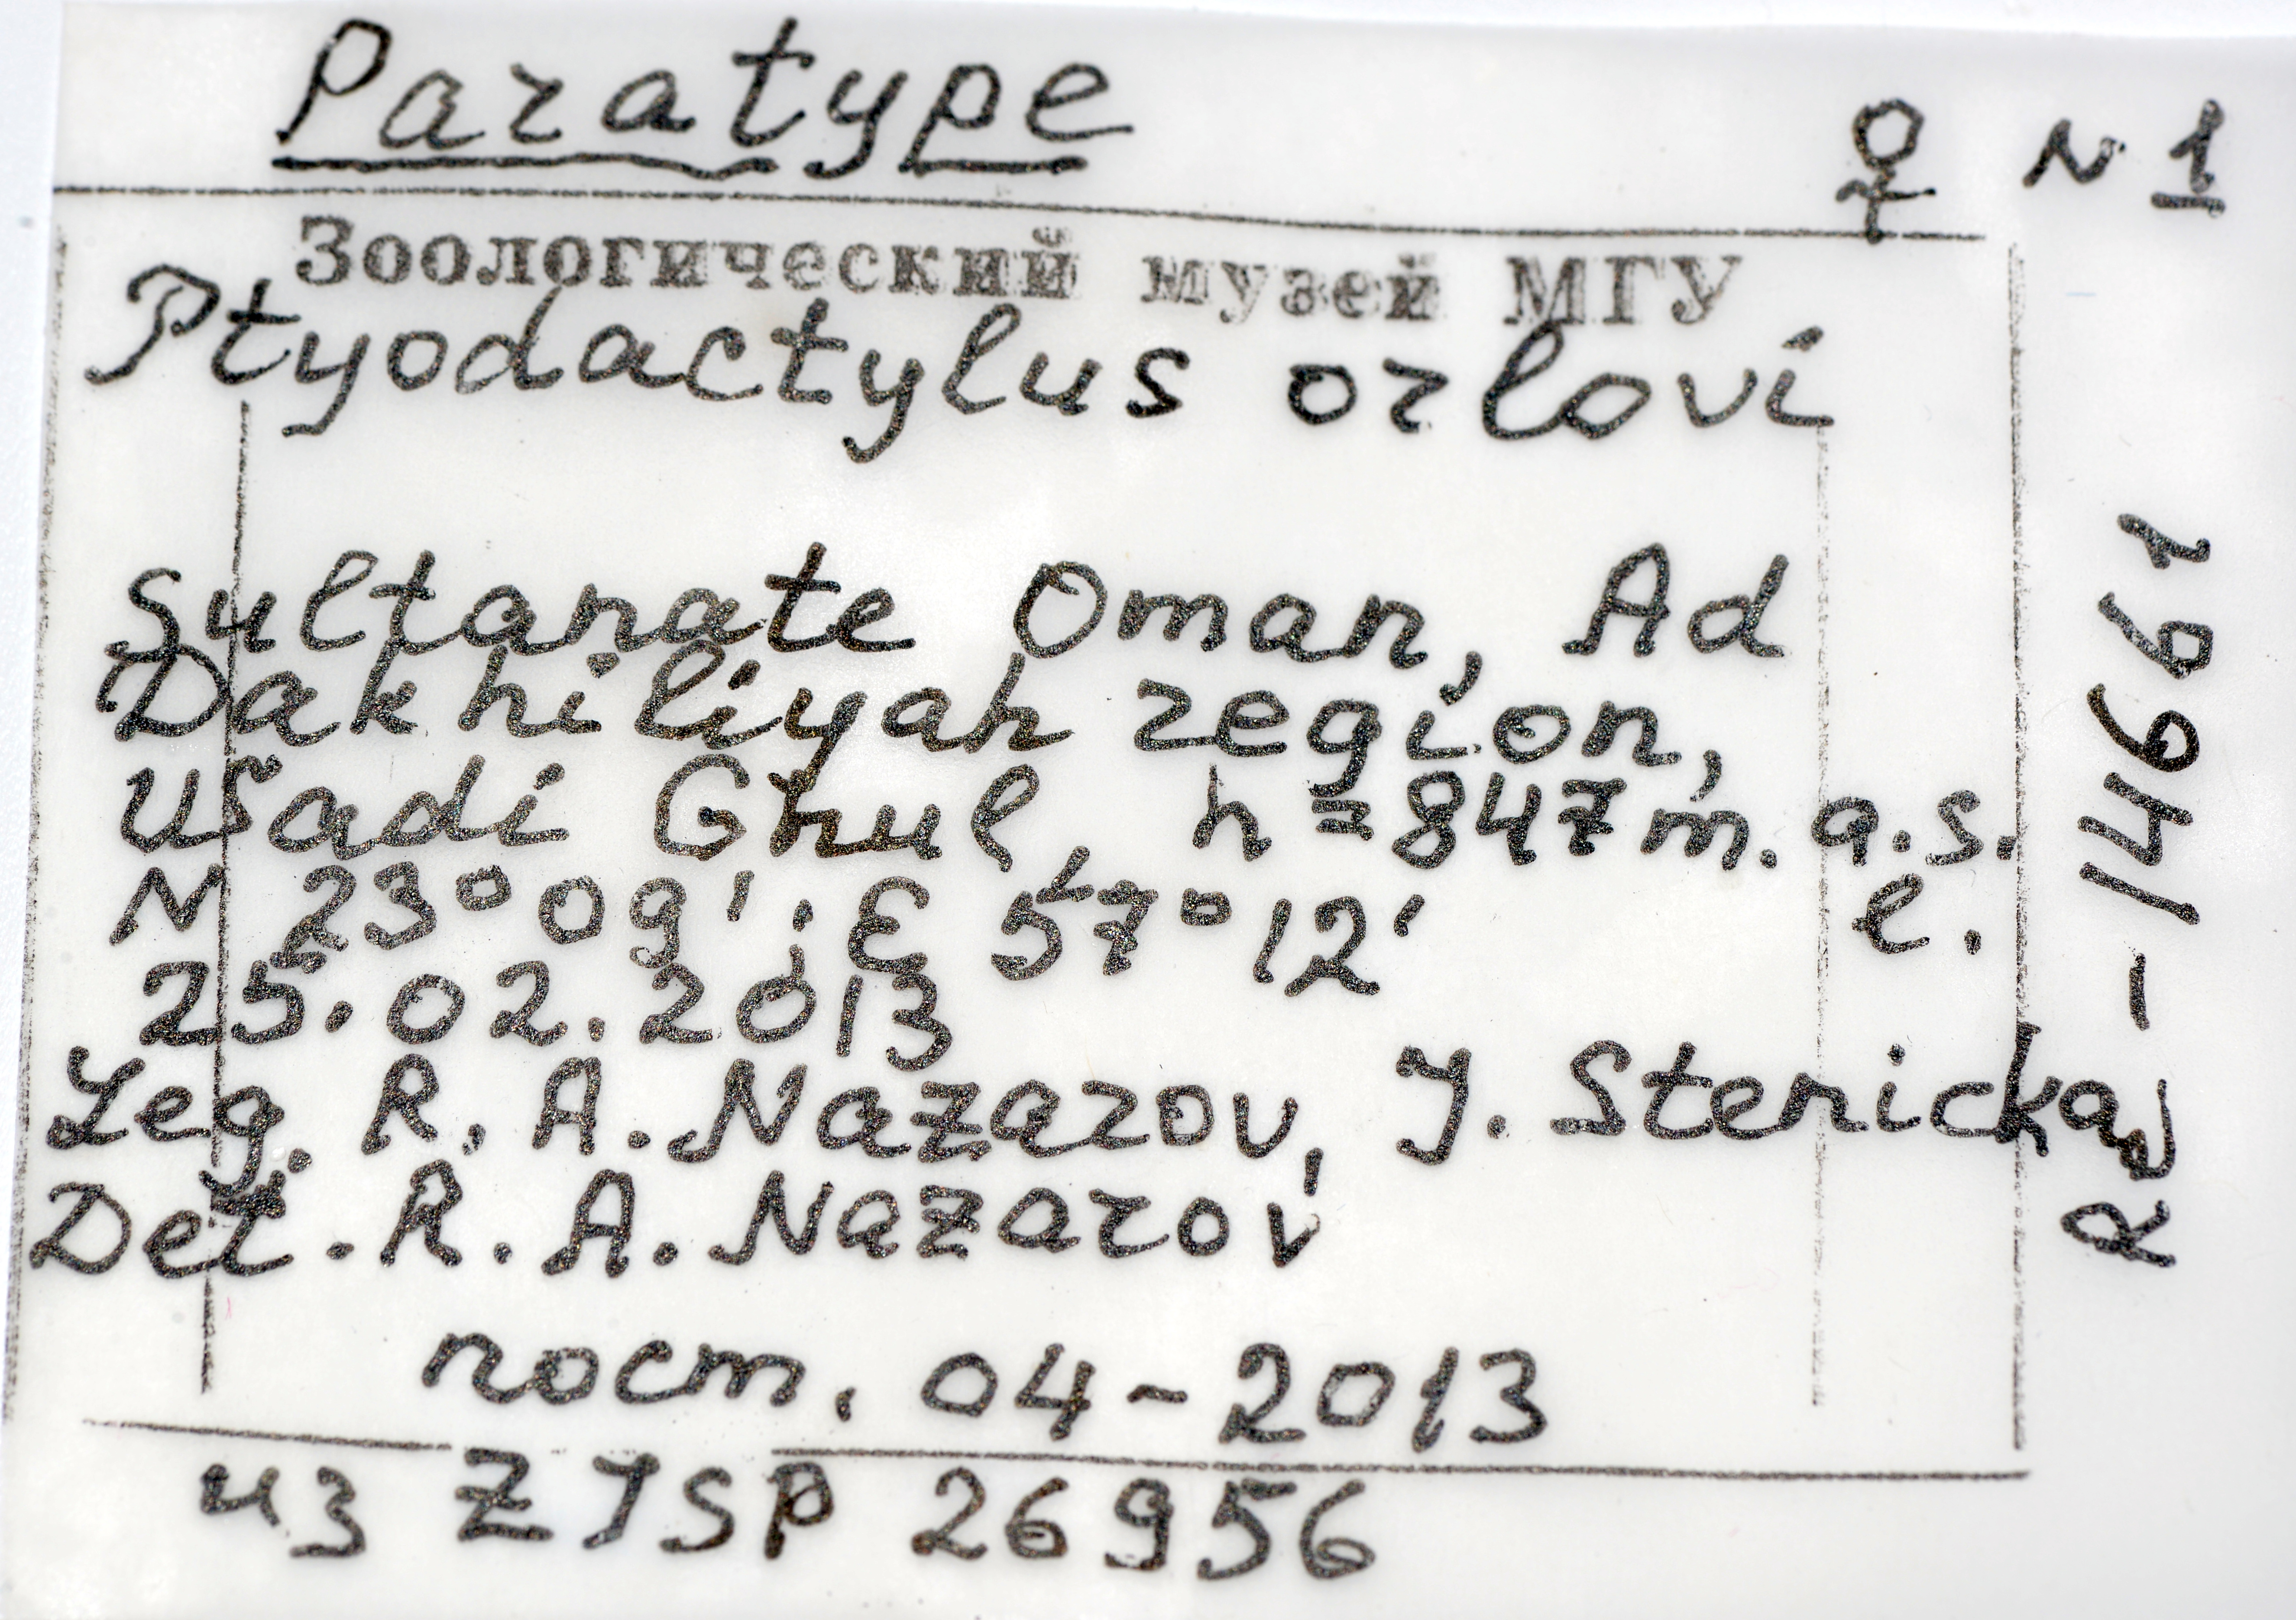 Paratype
♀ N 1
Зоологический музей МГУ
Ptyodactylus orlovi
Sultanate Oman, Ad
Dakhiliyah region,
Wadi Ghul, h=847m.a.s.
l.
N 23°09'; E 57°12'
25.02.2013
Leg. R.A.Nazarov, J. Stericka
Det. R.A.Nazarov
пост. 04-2013
из ZISP 26956
Re-14661